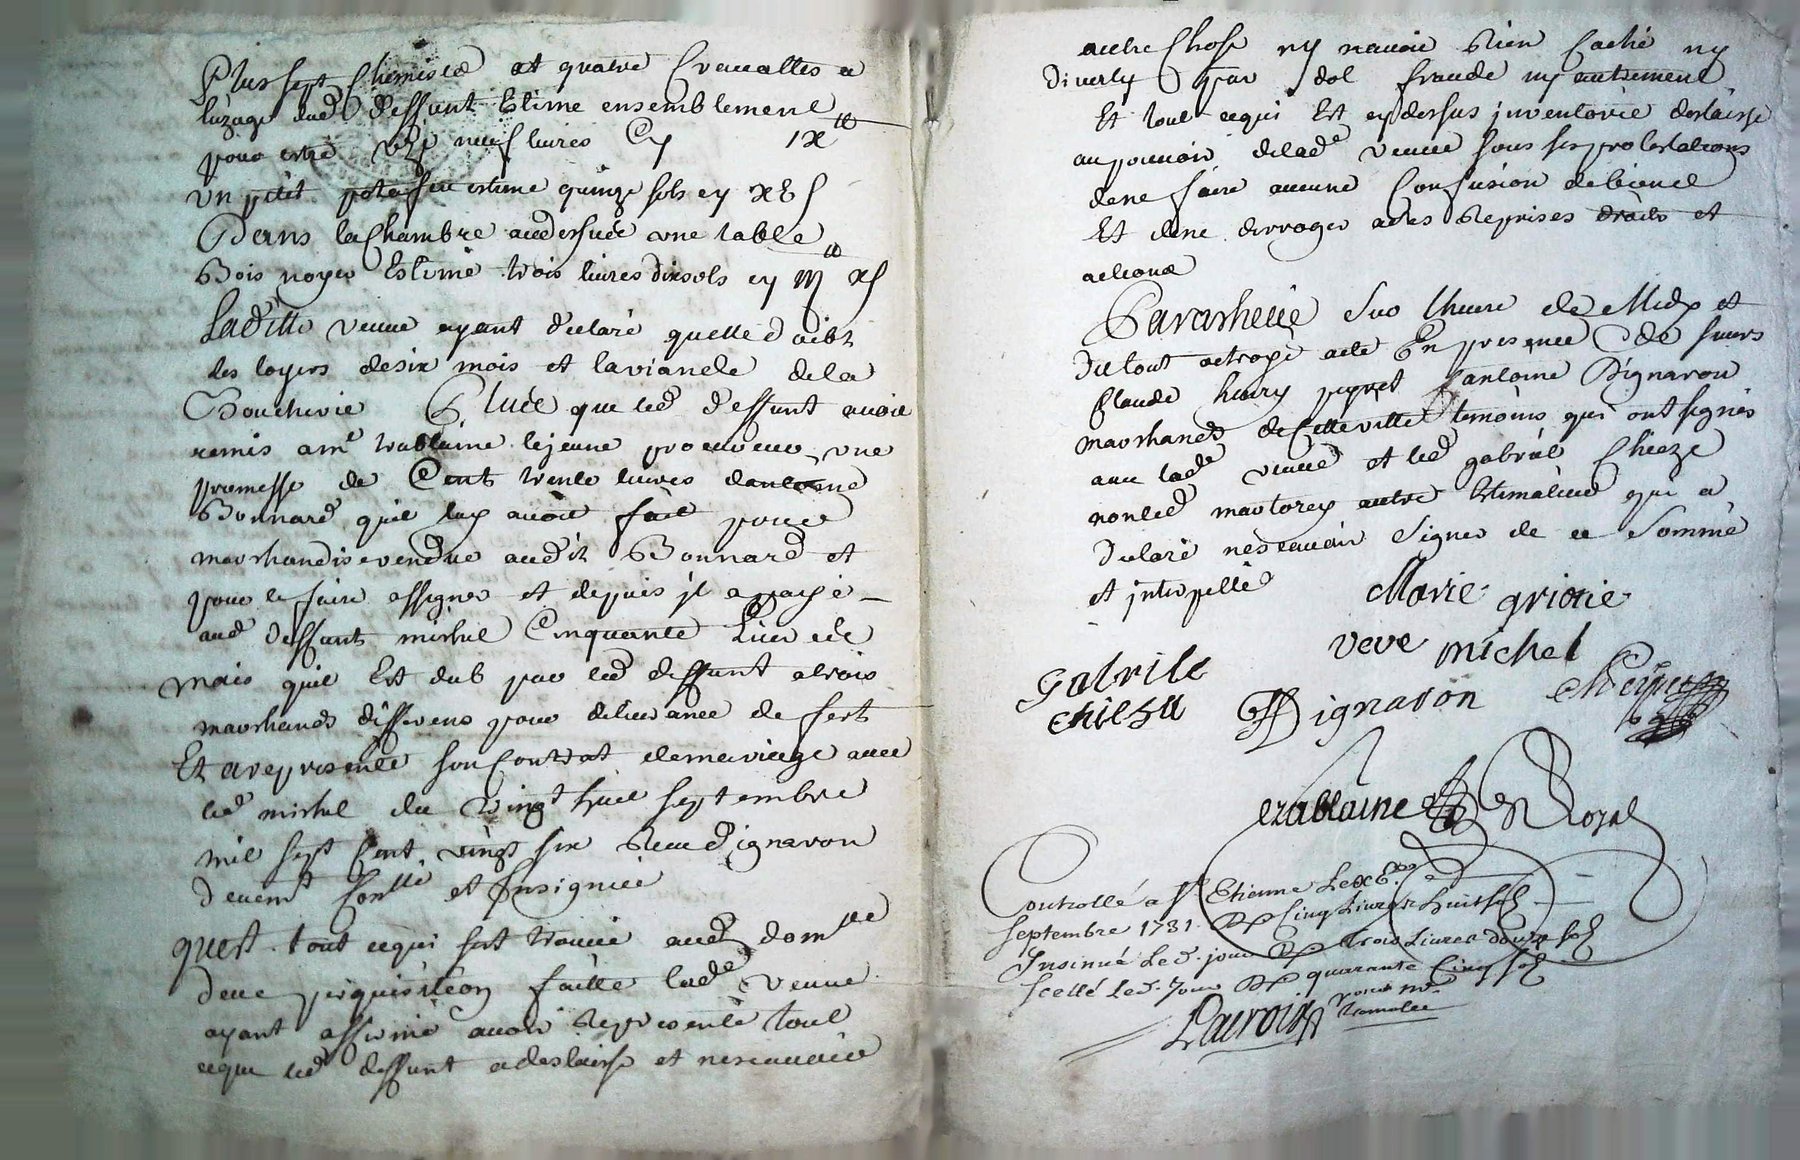 Plus sept chemises et quatre Cravattes a
luzage dud deffunt Estimé ensemblement
pour estre uzé neuf livres Cy IX ₶
un petit potafeu estimé quinze sols cy XV s
Dans la Chambre audessus une table
Bois noyer Estimé trois livres dix sols cy III ₶ X s
Laditte veuve ayant declaré quelle doibt
les loyers de six mois et la viande de la
Boucherie Plus que led deffunt avoit
remis a mr trablaine lejeune procureur une
promesse de Cent trente livres dantoine
Bonnard quil luy avoit fait pour
marchandise vendue audit Bonnard et
pour le faire assigner et depuis jl a payé
aud deffunt michel Cinquante Livres
mais quil Est dub par led deffunt a trois
marchands differens pour delivrance de fert
Et a representé son Contrat de mariage avec
led michel du vingt huit septembre
mil sept Cent vingt six Receu dignaron
devent Conllé et Insignué
quest tout cequi sest trouvé aud domlle
deue perquisition faitte lade veuve
ayant affirmé avoir Representé tout
ceque led deffunt a deslaissé et nescavoir
autre Chose ny navoir Rien Caché ny
diverty par dol fraude ny autrement
Et tout cequi Est cy dessus jnventorié deslaissé
au pouvoir de lade veuve sous ses protestations
de ne faire aucune Confusion de biens
Et de ne derroger a ses Reprises droits et
actions
Parachevé sur lheure de Midy et
du tout octroyé acte En presence de sieurs
Claude henry peyret antoine Dignaron
marchands de Cette ville temoins qui ont signés
avec lade veuve et led gabriel Cheze
non led martorey autre Estimateur qui a
declaré nescavoir signer de ce sommé
et jnterpellé
Marie griorie
veve michel
Gabrile
chiesa
Dignaron
trablaine
Royal
Controllé a St Etienne Le
septembre 1731 Rx Cinq Livres huit sols
Insinué Led. jour Rx trois Livres douze sols
scellé Led. Jour Rx quarante Cinq sols
Lacroix pour mr